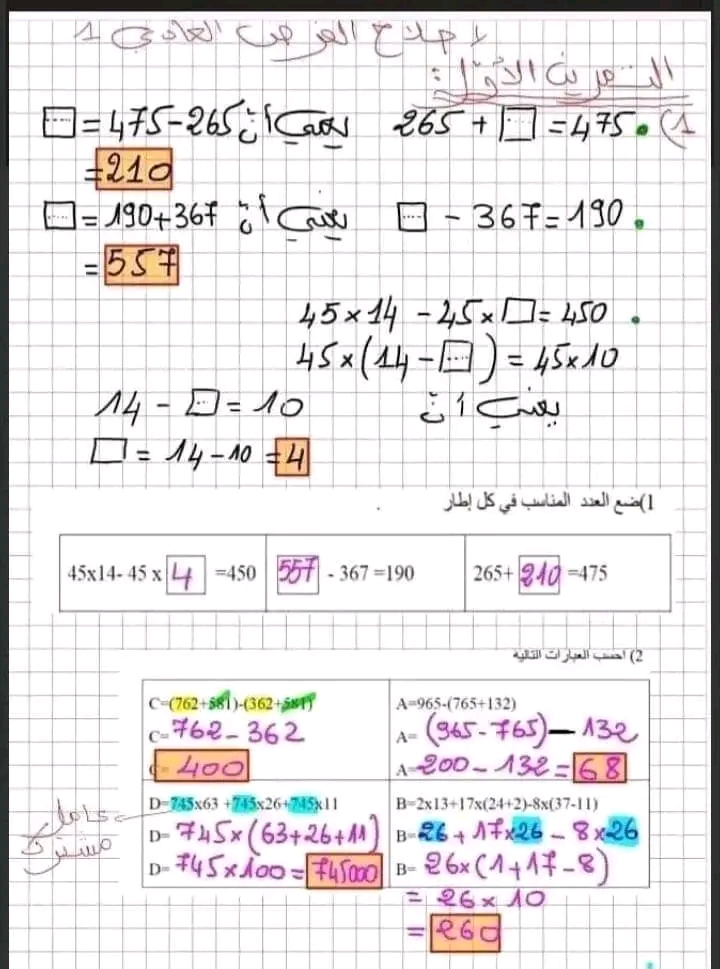 إصلاح الفرض العادي 1
التمرين الأول:
1) • 265 + □ = 475 يعني أن □ = 475 - 265
= 210
• □ - 367 = 190 يعني أن □ = 190 + 367
= 557
• 45 × 14 - 45 × □ = 450
45 × (14 - □) = 45 × 10
يعني أن 14 - □ = 10
□ = 14 - 10 = 4
1) ضع العدد المناسب في كل إطار
265+ 210 =475
557 - 367 =190
45x14- 45 x 4 =450
2) احسب العبارات التالية
A=965-(765+132)
A= (965-765) - 132
A= 200 - 132 = 68
C=(762+581)-(362+581)
C= 762 - 362
C= 400
B=2x13+17x(24+2)-8x(37-11)
B= 26 + 17×26 - 8×26
B= 26×(1+17-8)
= 26 × 10
= 260
D=745x63 +745x26+745x11
D= 745×(63+26+11)
D= 745×100 = 74500
عامل
مشترك